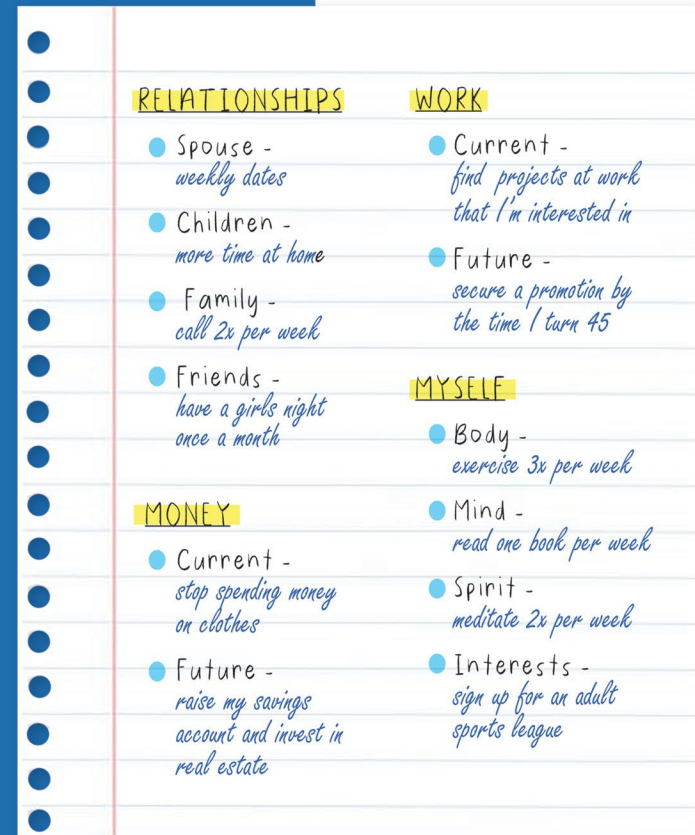 RELATIONSHIPS
Spouse -
weekly dates
Children -
more time at home
Family -
call 2x per week
Friends -
have a girls night
once a month
MONEY
Current -
stop spending money
on clothes
Future -
raise my savings
account and invest in
real estate
WORK
Current -
find projects at work
that I'm interested in
Future -
secure a promotion by
the time I turn 45
MYSELF
Body -
exercise 3x per week
Mind -
read one book per week
Spirit -
meditate 2x per week
Interests -
sign up for an adult
sports league